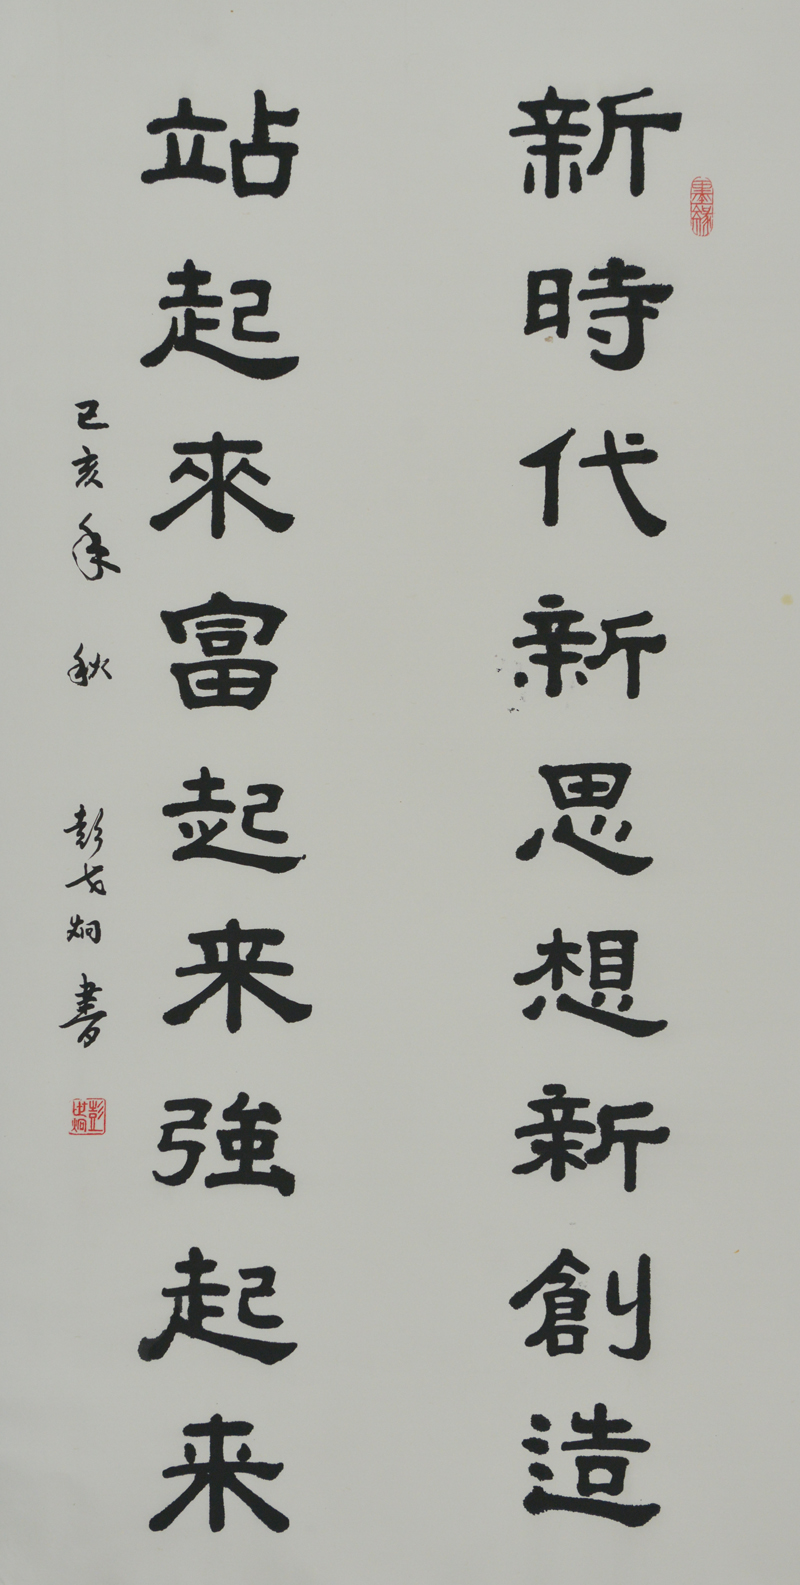 新時代新思想新創造
站起來富起来強起来
己亥年秋 彭世炯書
墨緣
彭世炯